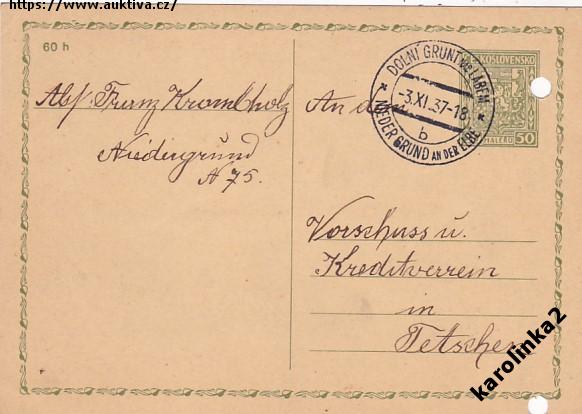 https://www.auktiva.cz/
60 h
Abs. Franz Krombholz
Niedergrund
N 75.
DOLNÍ GRUNT nad LABEM
-3.XI.37-18
b
NIEDER GRUND AN DER ELBE
ČESKOSLOVENSKO
50
HALÉŘŮ
An den
Vorschuss u.
Kreditverrein
in
Tetschen
karolinka2